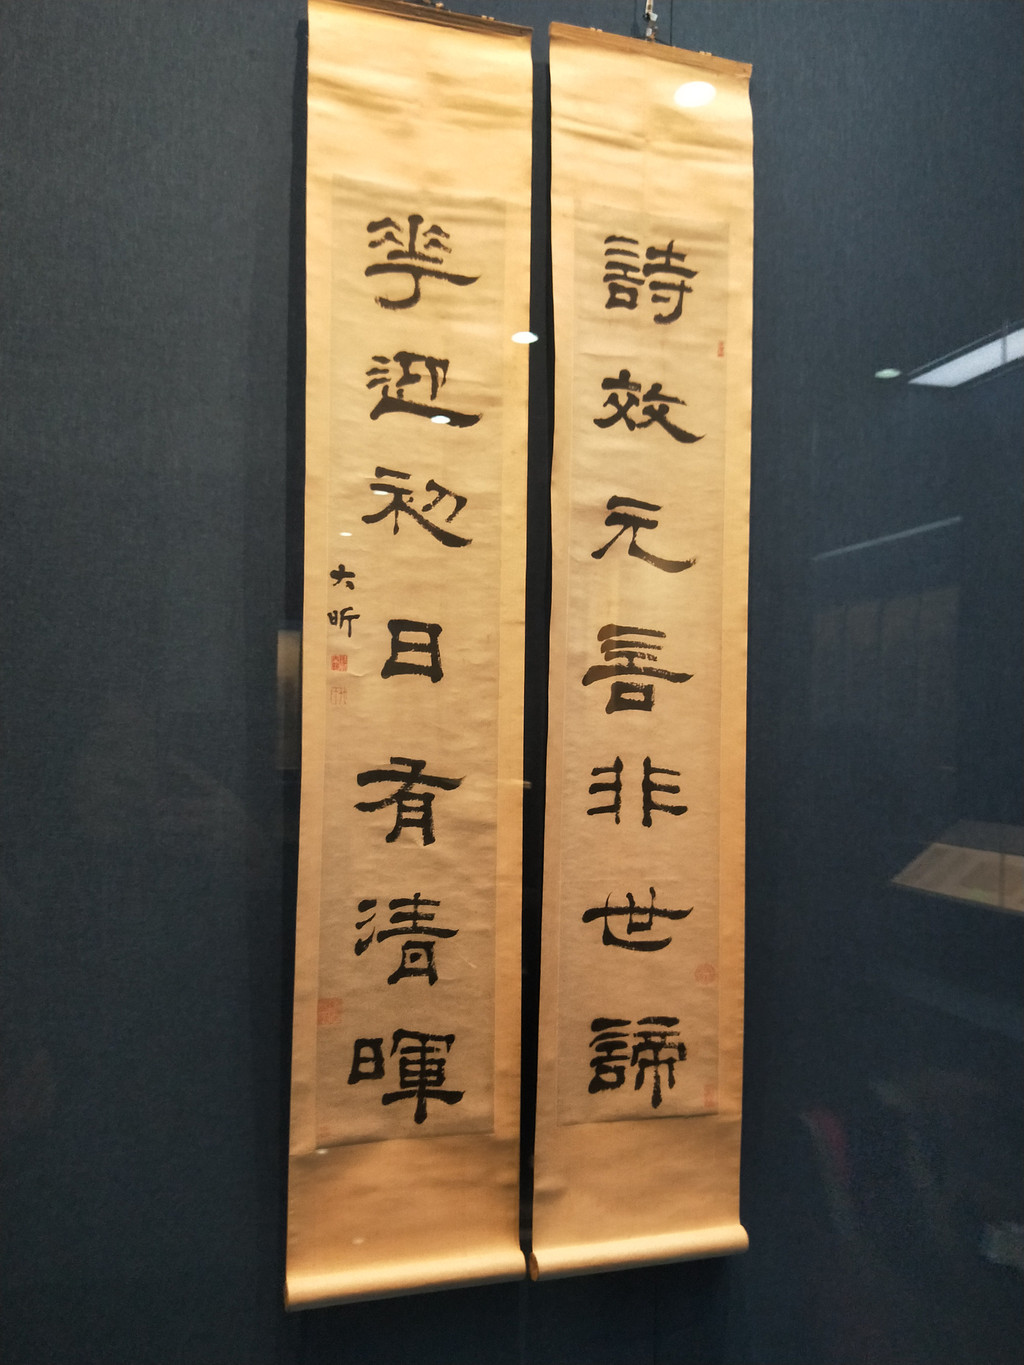 詩效元言非世諦
華迎初日有清暉
大昕